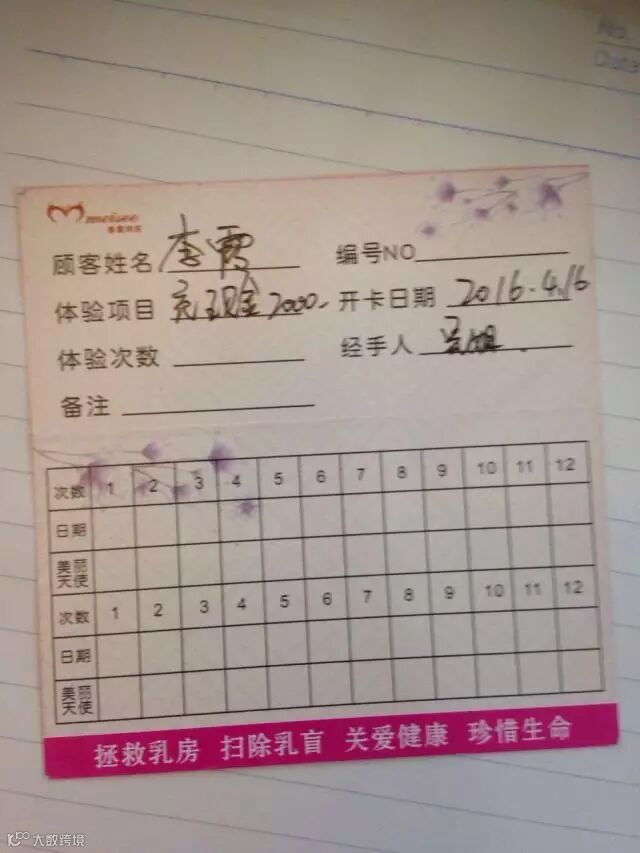 No.
Date
meisee
顾客姓名 李霞 编号NO
体验项目 充现金2000. 开卡日期 2016.4.16
体验次数 经手人
备注
次数 1 2 3 4 5 6 7 8 9 10 11 12
日期
美丽天使
次数 1 2 3 4 5 6 7 8 9 10 11 12
日期
美丽天使
拯救乳房 扫除乳盲 关爱健康 珍惜生命
大数跨境